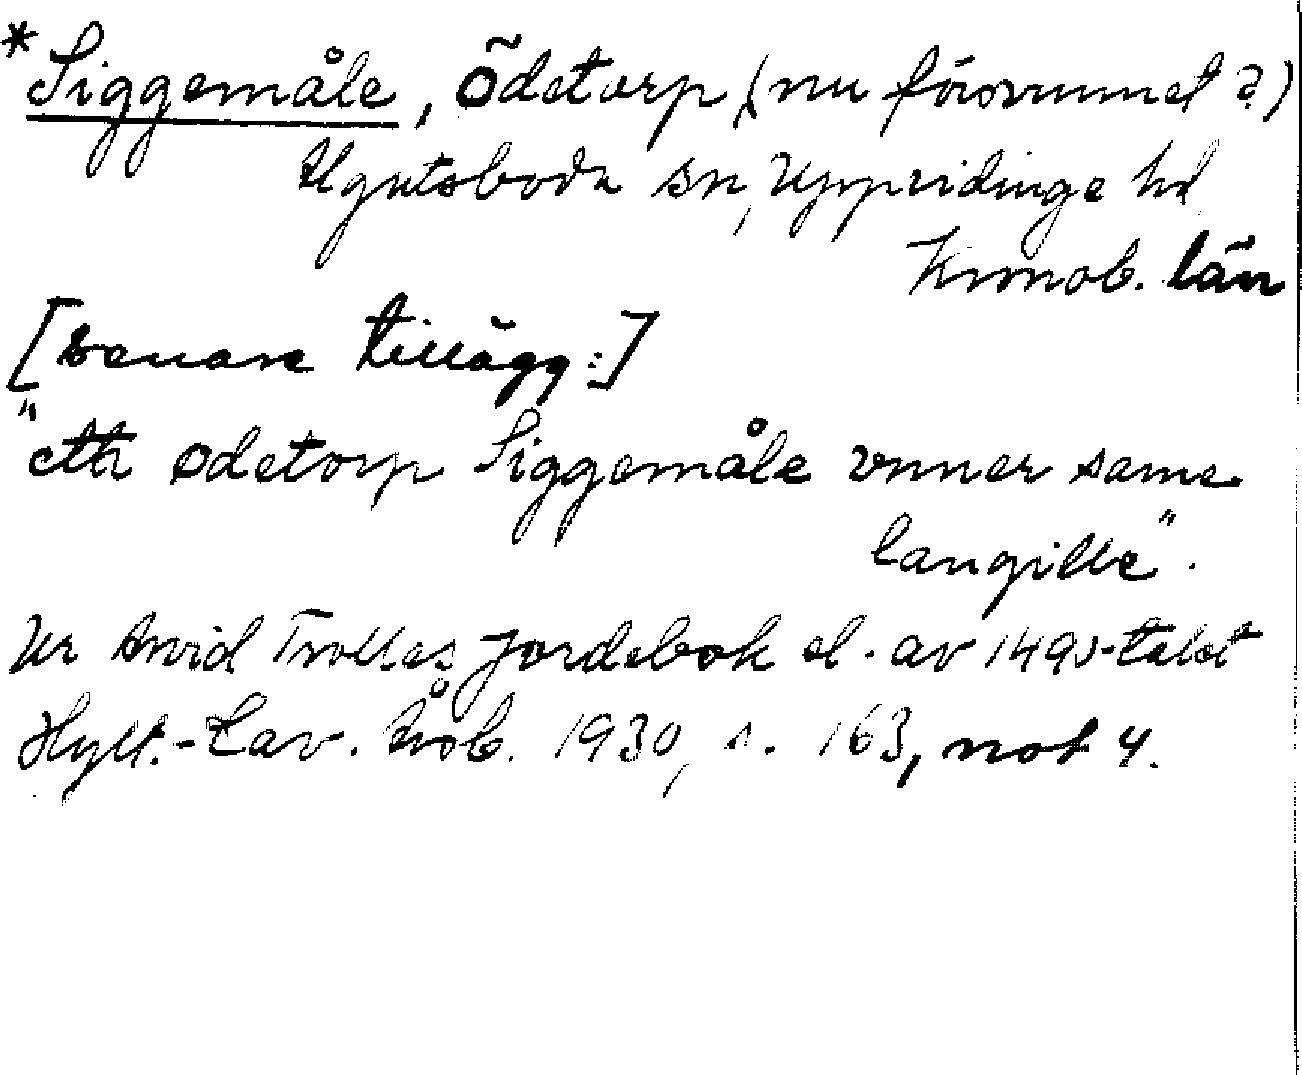 *Siggemåle, Ödetorp (nu försvunnet?)
Älgutsboda sn, Uppvidinge hd
Kronob. län
[senare tillägg:]
"eth ödetorp Siggemåle vnner same
langille".
Ur Arvid Trolles Jordebok sl. av 1490-talet
Hylt.-Cav. Årsb. 1930, s. 163, not 4.